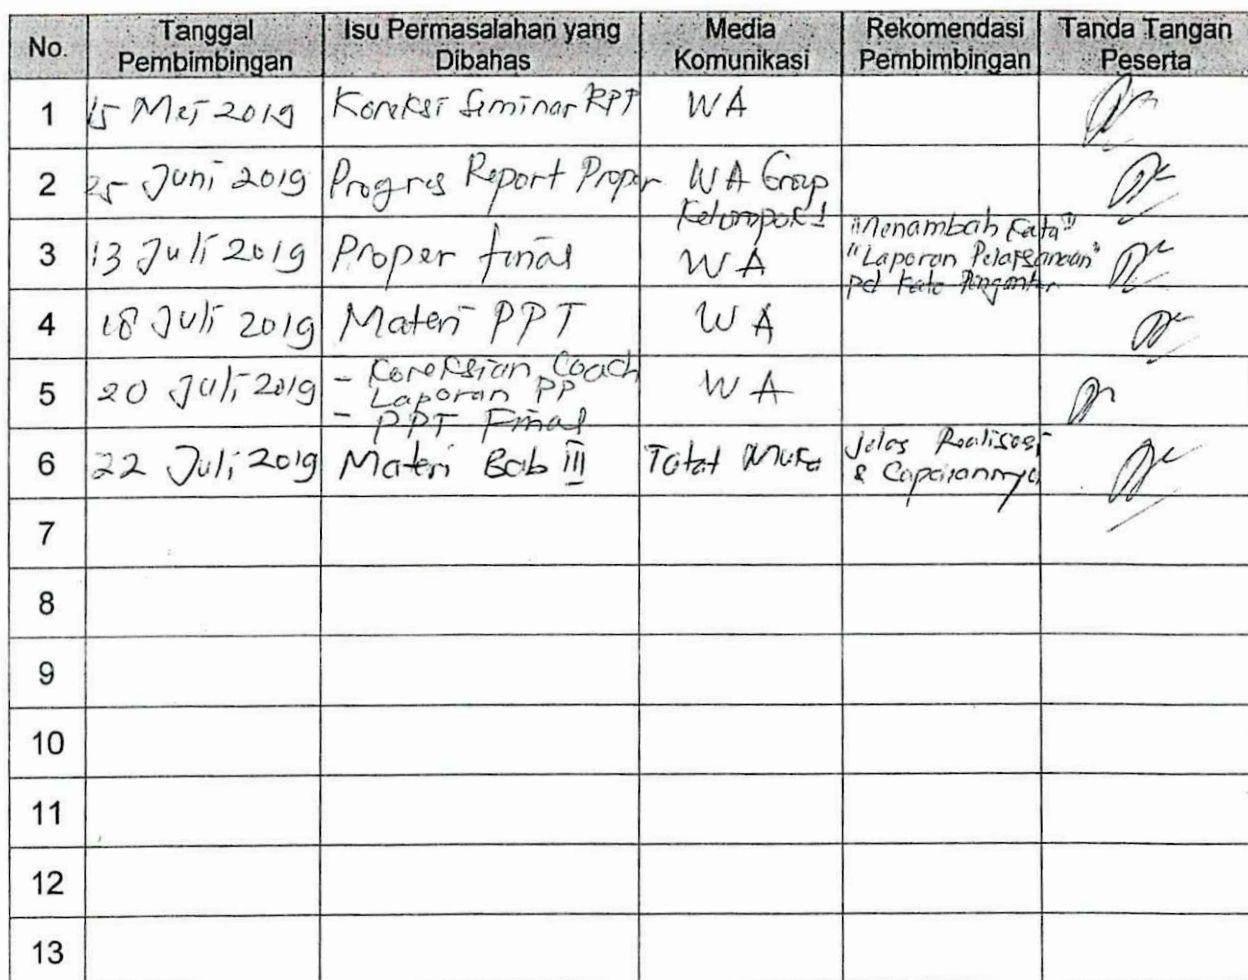 No. Tanggal Pembimbingan Isu Permasalahan yang Dibahas Media Komunikasi Rekomendasi Pembimbingan Tanda Tangan Peserta
1 15 Mei 2019 Koreksi Seminar RPT WA
2 25 Juni 2019 Progres Report Proper WA Group Kelompok 1
3 13 Juli 2019 Proper final WA "Menambah Kata" "Laporan Pelaksanaan" pd Kata Pengantar
4 18 Juli 2019 Materi PPT WA
5 20 Juli 2019 - Koreksian Coach Laporan PP - PPT Final WA
6 22 Juli 2019 Materi Bab III Tatat Muka Jelas Realisasi & Capaiannya
7
8
9
10
11
12
13